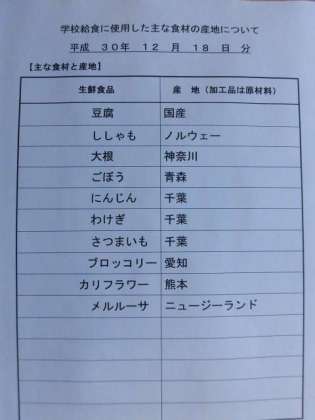 学校給食に使用した主な食材の産地について
平成 30年 12 月 18 日 分
【主な食材と産地】
生鮮食品 産 地（加工品は原材料）
豆腐 国産
ししゃも ノルウェー
大根 神奈川
ごぼう 青森
にんじん 千葉
わけぎ 千葉
さつまいも 千葉
ブロッコリー 愛知
カリフラワー 熊本
メルルーサ ニュージーランド